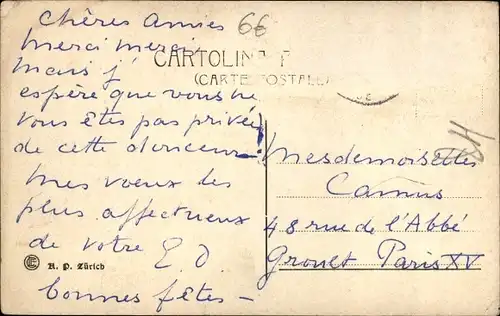 Chères Amies
Merci merci
Mais j'
espère que vous ne
vous êtes pas privées
de cette douceur!
Mes voeux des
plus affectueux
de votre E. D.
bonnes fêtes -
66
CARTOLINA P
(CARTE POSTALE)
Mesdemoiselles
Camus
48 rue de l'Abbé
Groult Paris XV
R. P. Zürich